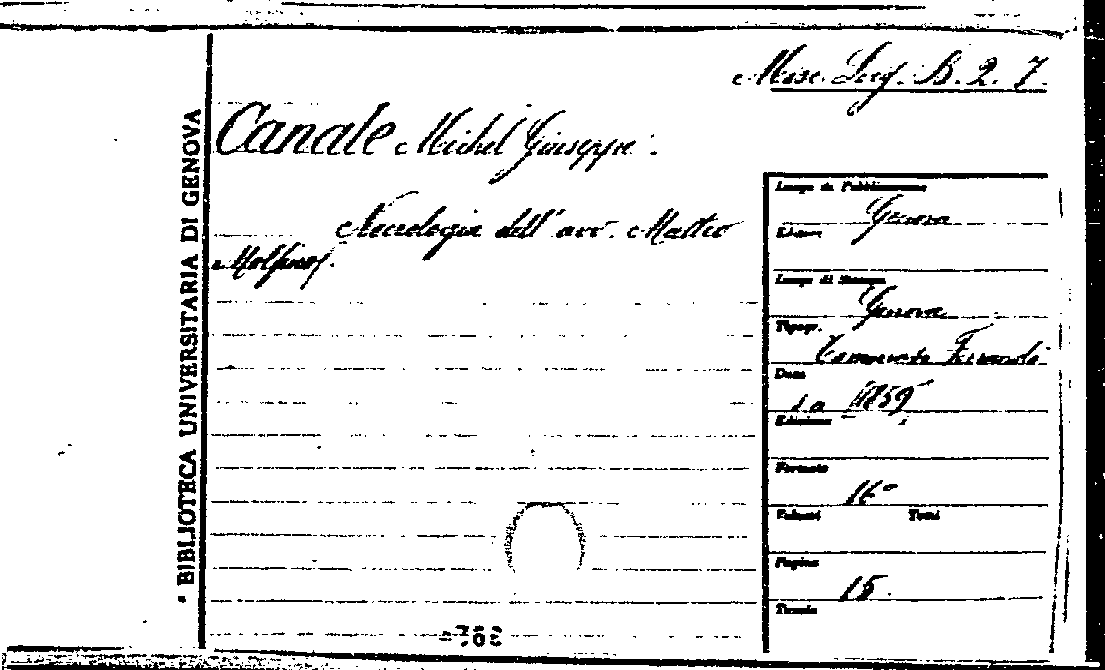 Misc. Lig. B. 2. 7.
Canale Michel Giuseppe.
Necrologia dell' avv. Matteo
Molfino.
BIBLIOTECA UNIVERSITARIA DI GENOVA
Luogo di Pubblicazione
Genova
Editore
Luogo di Stampa
Genova
Tipogr.
Ferrando
Data
s. a 1859
Edizione
Formato
16°
Volumi Tomi
Pagine
15.